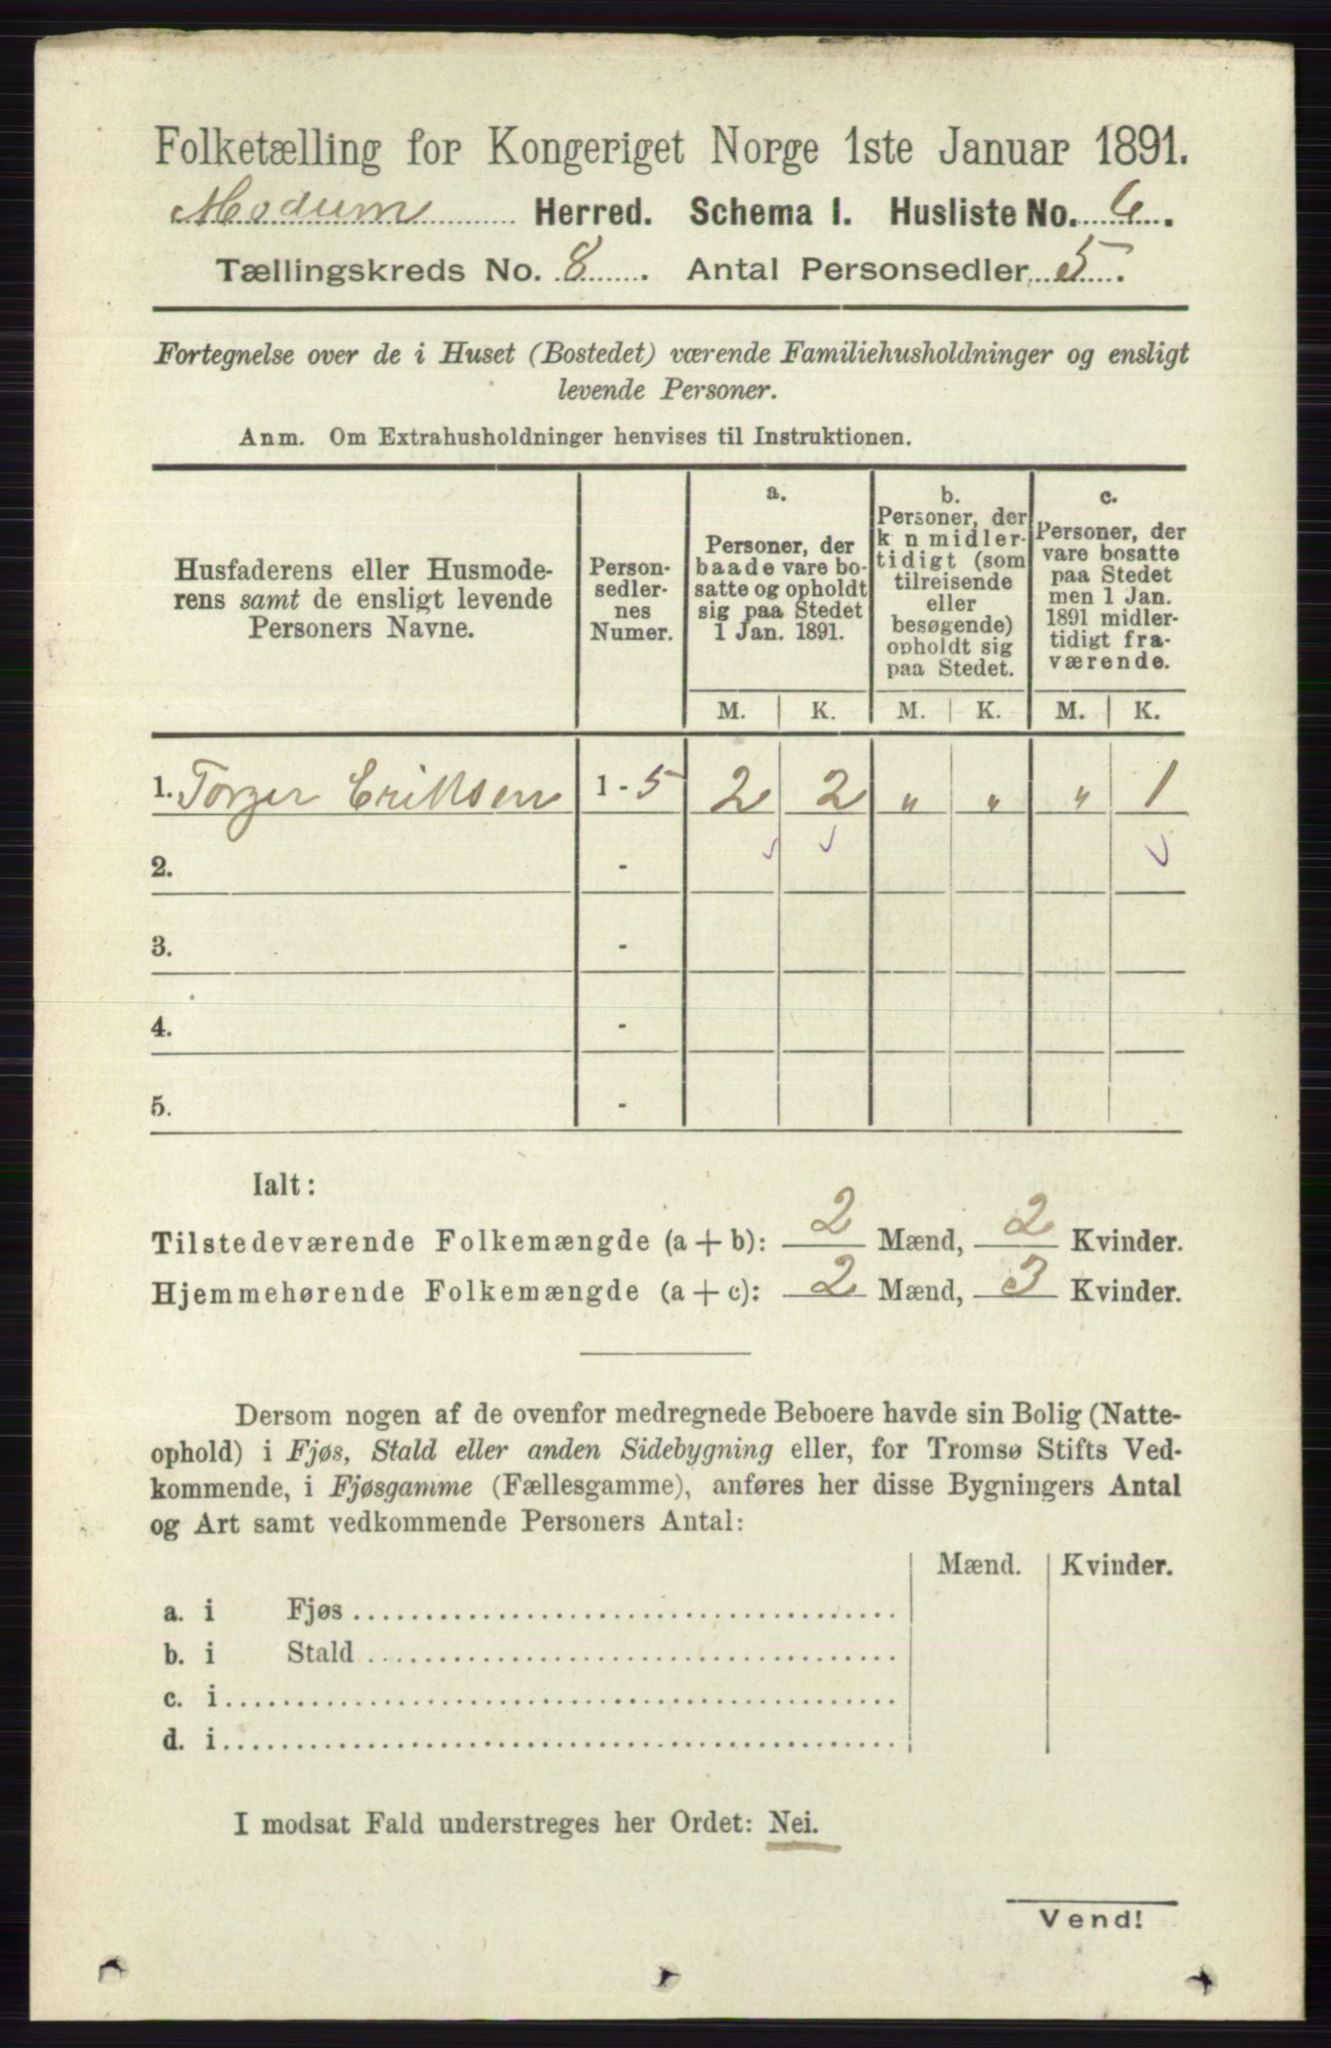 Folketælling for Kongeriget Norge 1ste Januar 1891.
Modum Herred. Schema 1. Husliste No. 6.
Tællingskreds No. 8. Antal Personsedler 5.
Fortegnelse over de i Huset (Bostedet) værende Familiehusholdninger og ensligt
levende Personer.
Anm. Om Extrahusholdninger henvises til Instruktionen.
Husfaderens eller Husmode-
rens samt de ensligt levende
Personers Navne.
Person-
sedler-
nes
Numer.
a.
Personer, der
baade vare bo-
satte og opholdt
sig paa Stedet
1 Jan. 1891.
b.
Personer, der
k n midler-
tidigt (som
tilreisende
eller
besøgende)
opholdt sig
paa Stedet.
c.
Personer, der
vare bosatte
paa Stedet
men 1 Jan.
1891 midler-
tidigt fra-
værende.
M. K. M. K. M. K.
1. Torger Eriksen 1 - 5 2 2 " " " 1
2. -
3. -
4. -
5. -
Ialt:
Tilstedeværende Folkemængde (a + b): 2 Mænd, 2 Kvinder.
Hjemmehørende Folkemængde (a + c): 2 Mænd, 3 Kvinder.
Dersom nogen af de ovenfor medregnede Beboere havde sin Bolig (Natte-
ophold) i Fjøs, Stald eller anden Sidebygning eller, for Tromsø Stifts Ved-
kommende, i Fjøsgamme (Fællesgamme), anføres her disse Bygningers Antal
og Art samt vedkommende Personers Antal:
Mænd. Kvinder.
a. i Fjøs
b. i Stald
c. i
d. i
I modsat Fald understreges her Ordet: Nei.
Vend!